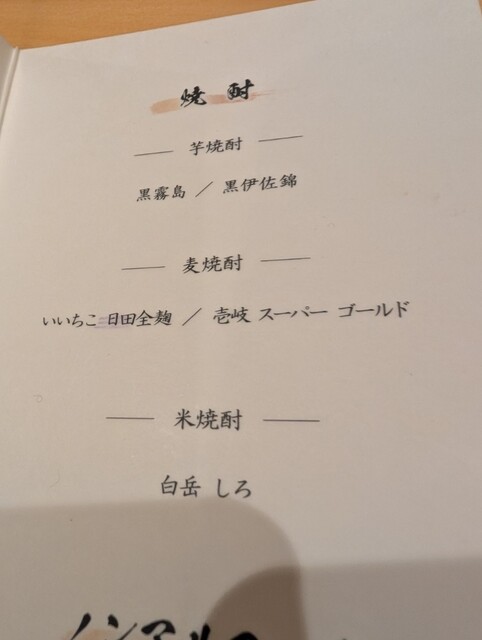 焼酎
芋焼酎
黒霧島 / 黒伊佐錦
麦焼酎
いいちこ 日田全麹 / 壱岐 スーパー ゴールド
米焼酎
白岳 しろ